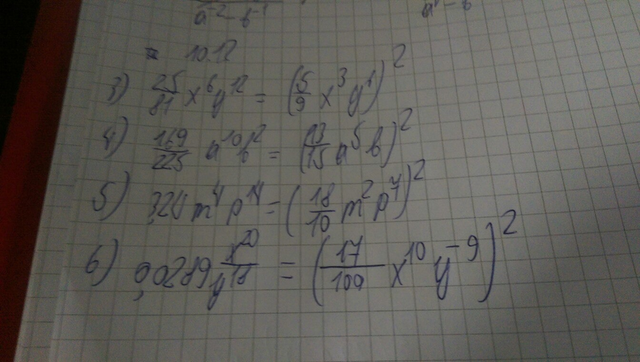 a⁻² - b⁻¹
10.12
3) 25/81 x⁶y¹² = (5/9 x³y⁶)²
4) 169/225 a¹⁰b² = (13/15 a⁵b)²
5) 3,24 m⁴p¹⁴ = (18/10 m²p⁷)²
6) 0,0289 x²⁰/y¹⁸ = (17/100 x¹⁰y⁻⁹)²